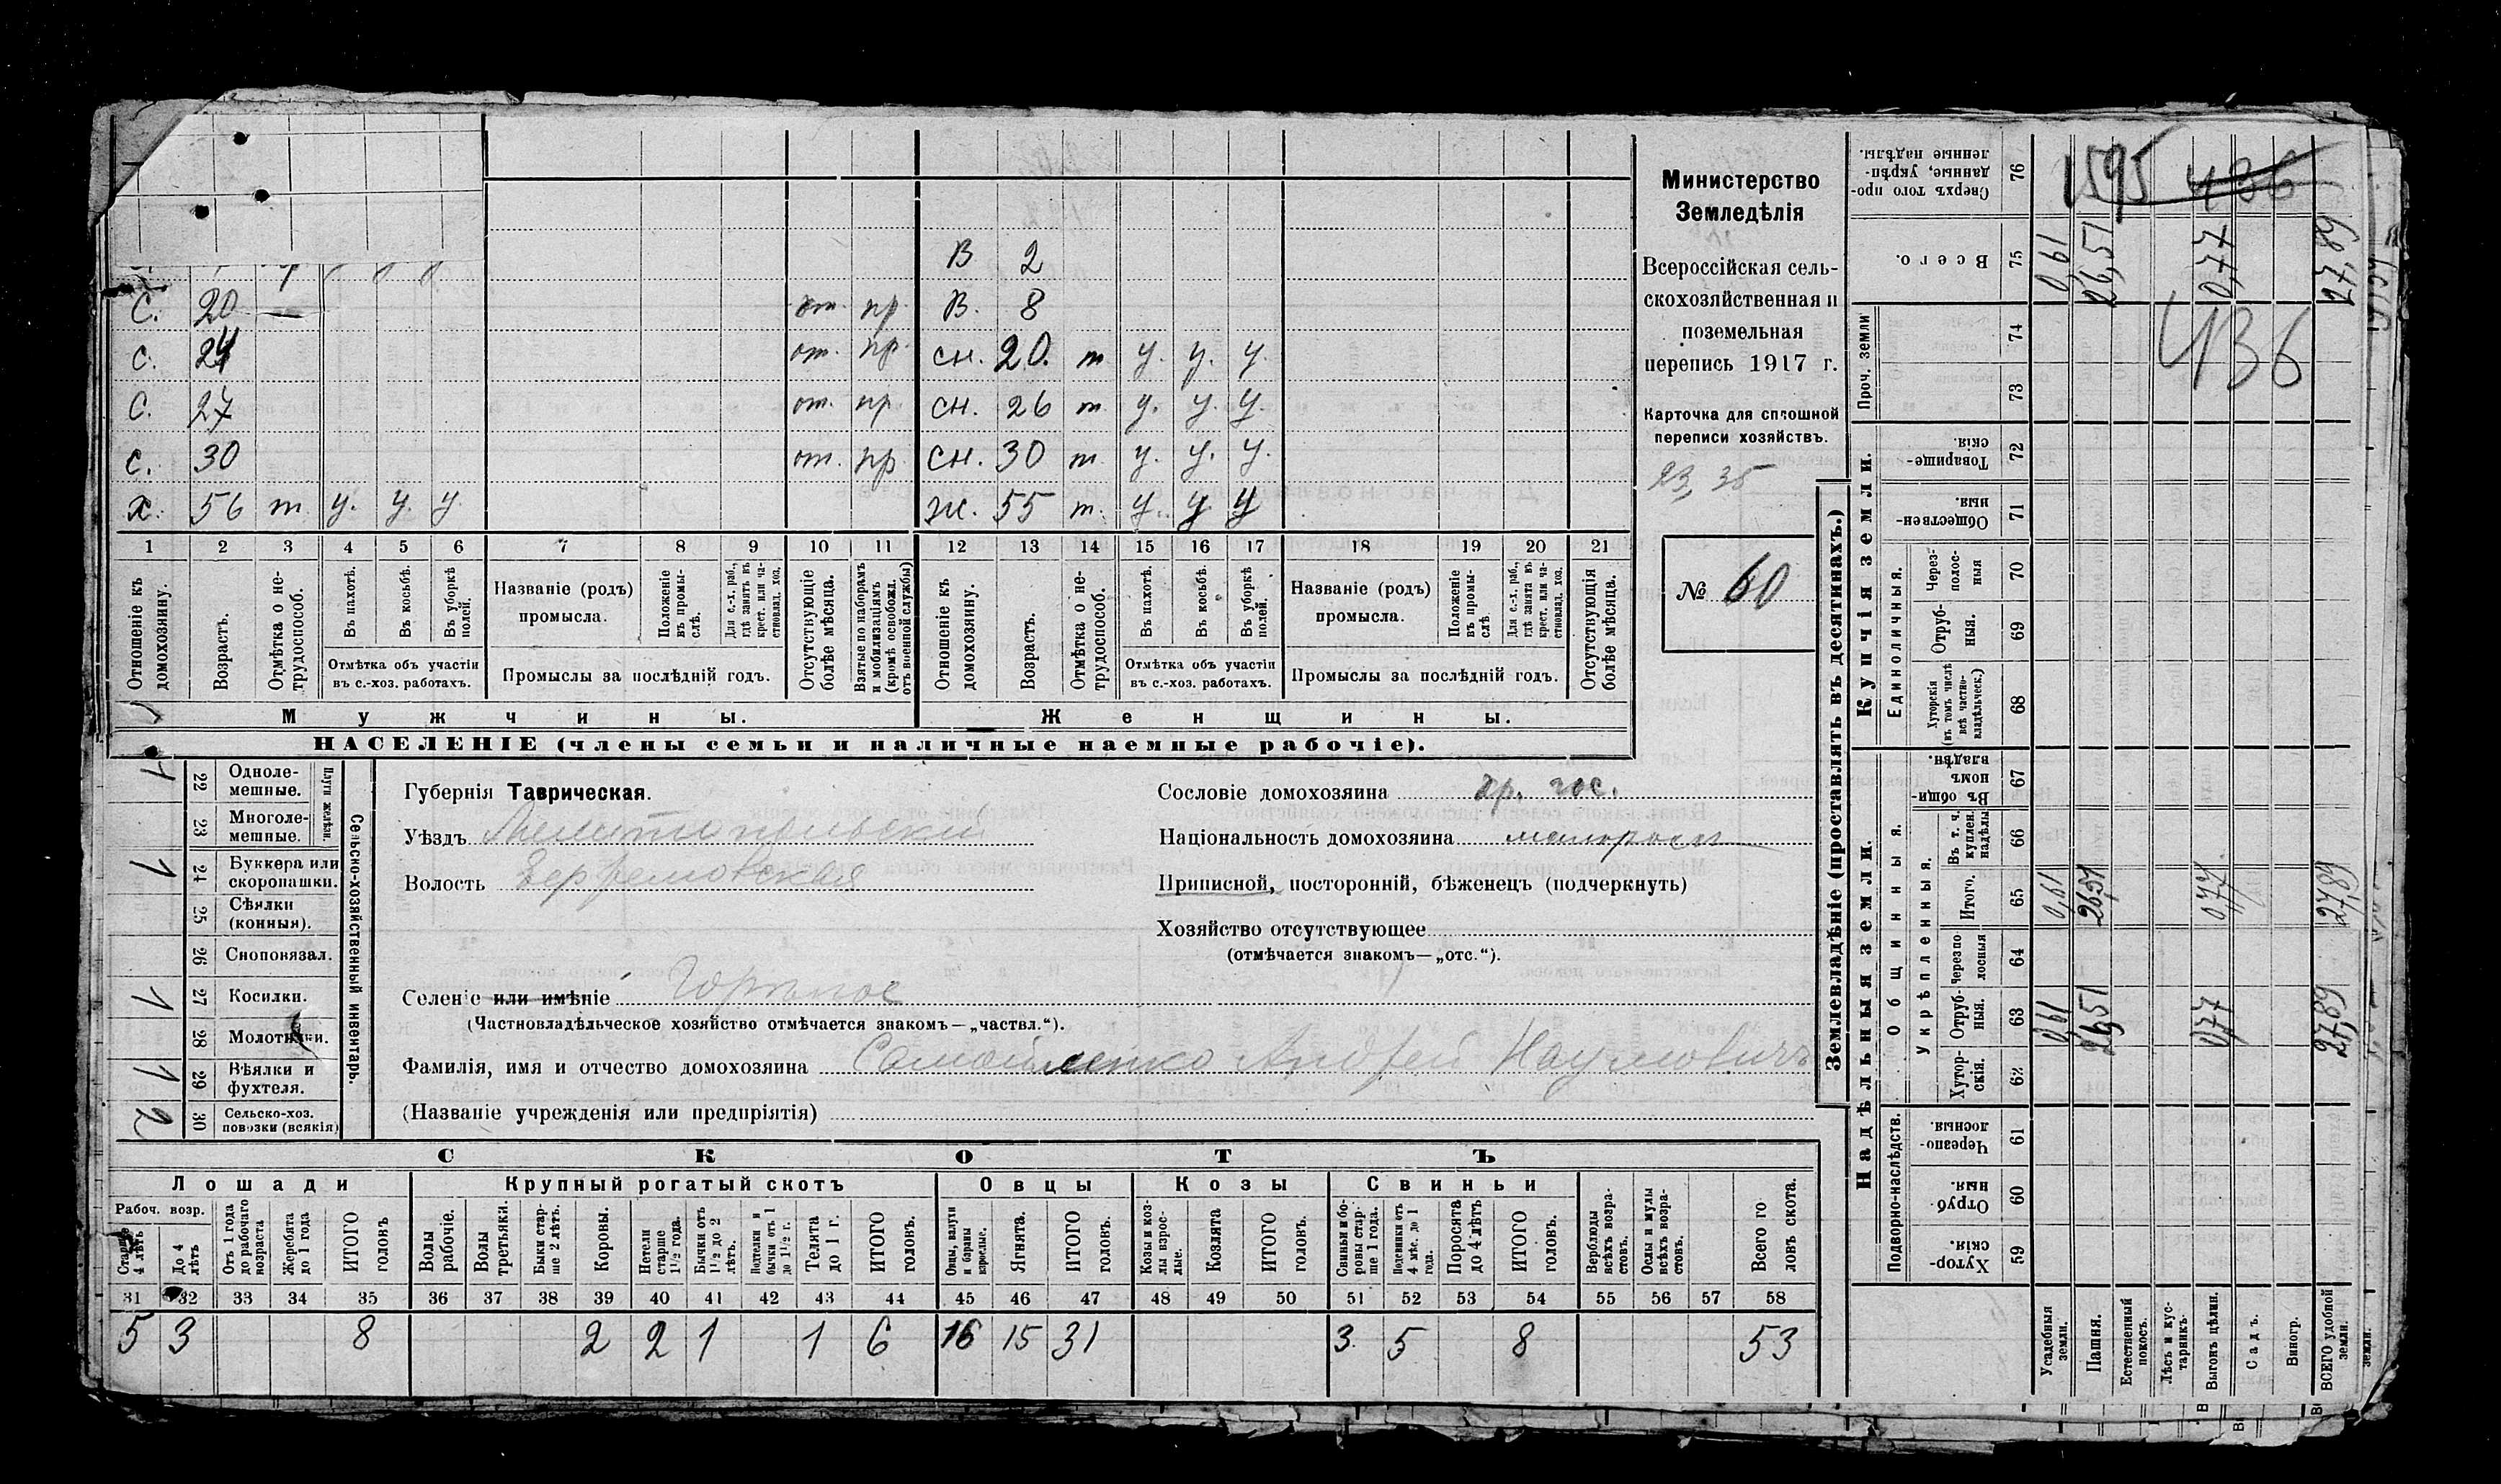 В 2
С. 20 от. пр. В. 8
С. 24 от. пр. сн. 20. т у. у. у.
С. 27 от. пр. сн. 26 т. у. у. у.
С. 30 от. пр. сн. 30 т у. у. у.
х. 56 т у. у. у. ж. 55 т. у. у у
1 2 3 4 5 6 7 8 9 10 11 12 13 14 15 16 17 18 19 20 21
Отношеніе къ домохозяину.
Возрастъ.
Отмѣтка о нетрудоспособ.
Въ пахотѣ.
Въ косьбѣ.
Въ уборкѣ полей.
Отмѣтка объ участіи
въ с.-хоз. работахъ.
Названіе (родъ)
промысла.
Положеніе въ промыслѣ.
Для с.-х. раб., гдѣ занятъ въ крест. или частновлад. хоз.
Промыслы за послѣдній годъ.
Отсутствующіе болѣе мѣсяца.
Взятые по наборамъ и мобилизаціямъ (кромѣ освобожд. отъ военной службы)
Отношеніе къ домохозяину.
Возрастъ.
Отмѣтка о нетрудоспособ.
Въ пахотѣ.
Въ косьбѣ.
Въ уборкѣ полей.
Отмѣтка объ участіи
въ с.-хоз. работахъ.
Названіе (родъ)
промысла.
Положеніе въ промыслѣ
Для с.-х. раб., гдѣ занята въ крест. или частновлад. хоз.
Промыслы за послѣдній годъ.
Отсутствующія болѣе мѣсяца.
Мужчины. Женщины.
НАСЕЛЕНІЕ (члены семьи и наличные наемные рабочіе).
Министерство
Земледѣлія
Всероссійская сель-
скохозяйственная и
поземельная
перепись 1917 г.
Карточка для сплошной
переписи хозяйствъ.
23, 35
№ 60
Сельско-хозяйственный инвентарь.
Плуги желѣзн.
1 22 Одноле-
мешные.
23 Многоле-
мешные.
1 24 Буккера или
скоропашки.
25 Сѣялки
(конныя).
26 Сноповязал.
1 27 Косилки.
28 Молотилки.
1 29 Вѣялки и
фухтеля.
2 30 Сельско-хоз.
повозки (всякія)
Губернія Таврическая.
Уѣздъ Мелитопольскій
Волость Ефремовская
Селеніе или имѣніе Горькое
(Частновладѣльческое хозяйство отмѣчается знакомъ—„частвл.“).
Фамилія, имя и отчество домохозяина Самойленко Андрей Наумовичъ
(Названіе учрежденія или предпріятія)
Сословіе домохозяина кр. гос.
Національность домохозяина малоросъ
Приписной, посторонній, бѣженецъ (подчеркнуть)
Хозяйство отсутствующее
(отмѣчается знакомъ—„отс.“).
СКОТЪ
Лошади Крупный рогатый скотъ Овцы Козы Свиньи
Рабоч. возр.
Старше 4 лѣтъ
До 4 лѣтъ
Отъ 1 года до рабочаго возраста
Жеребята до 1 года
ИТОГО головъ
Волы рабочіе.
Волы третьяки.
Быки старше 2 лѣтъ.
Коровы.
Нетели старше 1½ года.
Бычки отъ 1½ до 2 лѣтъ.
Подтелки и бычки отъ 1 до 1½ г.
Телята до 1 г.
ИТОГО головъ.
Овцы, валухи и бараны взрослые.
Ягнята.
ИТОГО головъ.
Козы и козлы взрослые.
Козлята
ИТОГО головъ.
Свиньи и боровы старше 1 года.
Подсвинки отъ 4 мѣс. до 1 года.
Поросята до 4 лѣтъ
ИТОГО головъ.
Верблюды всѣхъ возрастовъ.
Ослы и мулы всѣхъ возрастовъ.
Всего головъ скота.
31 32 33 34 35 36 37 38 39 40 41 42 43 44 45 46 47 48 49 50 51 52 53 54 55 56 57 58
5 3 8 2 2 1 1 6 16 15 31 3 5 8 53
Землевладѣніе (проставлять въ десятинахъ.)
Надѣльныя земли. Купчія земли. Проч. земли
Подворно-наслѣдств. Общинныя. Укрѣпленныя. Единоличныя.
Хуторскія. 59
Отрубныя. 60
Черезполосныя. 61
Хуторскія. 62
Отрубныя. 63 0,61 26,51 0,77 27,89
Черезполосныя 64
Итого. 65 0,61 26,51 0,77 27,89
Въ т. ч. куплен. надѣлы 66
Въ общинномъ владѣн. 67
Хуторскія (въ томъ числѣ всѣ частновладѣльческ.) 68
Отрубныя. 69
Черезполосныя 70
Общественныя 71
Товарищескія. 72
73
74
Всего. 75 0,61 26,51 0,77 27,89
Сверхъ того проданные, укрѣпленные надѣлы. 76
1595 436
436
Усадебныя земли.
Пашня.
Естественный покосъ.
Лѣсъ и кустарникъ.
Выгонъ цѣлин.
Садъ.
Виногр.
ВСЕГО удобной земли.
земли.